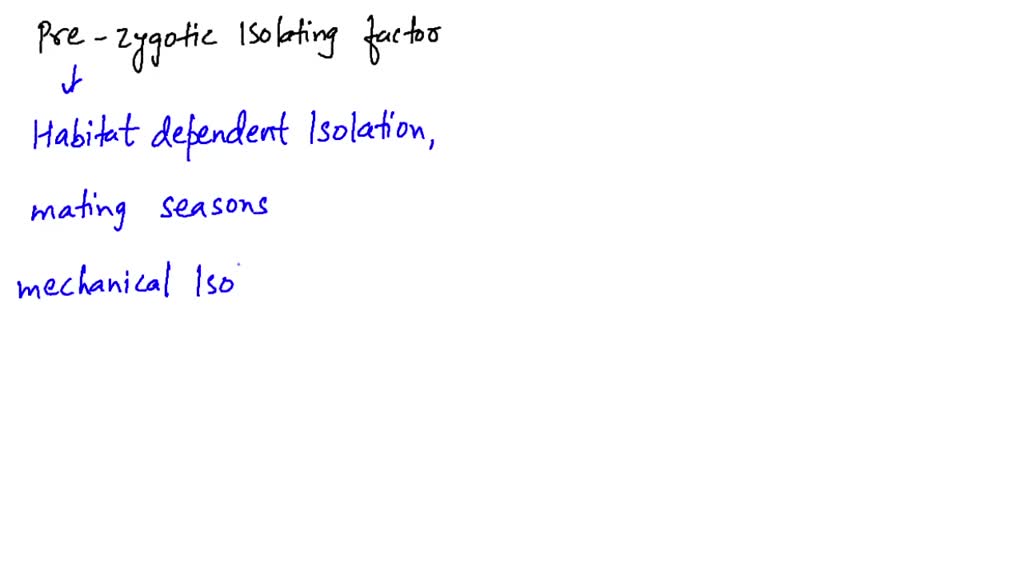 Pre - zygotic Isolating factor
Habitat dependent Isolation,
mating seasons
mechanical Iso